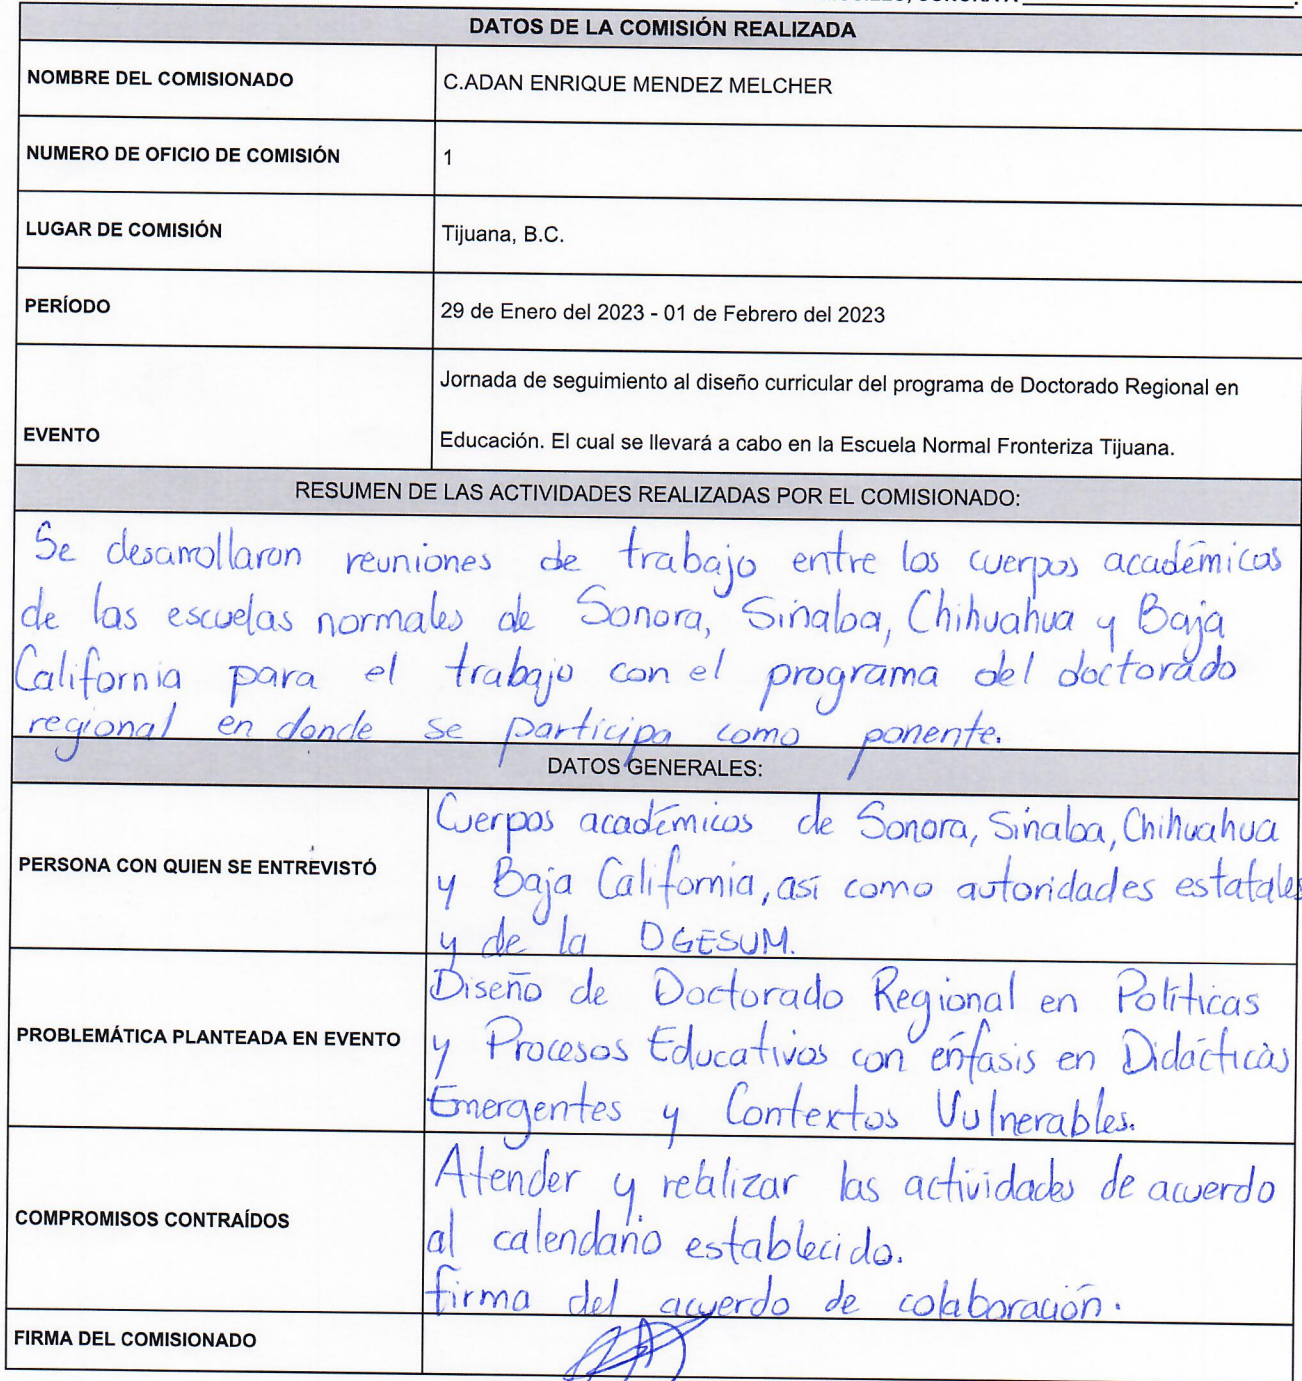 DATOS DE LA COMISIÓN REALIZADA
NOMBRE DEL COMISIONADO
C.ADAN ENRIQUE MENDEZ MELCHER
NUMERO DE OFICIO DE COMISIÓN
1
LUGAR DE COMISIÓN
Tijuana, B.C.
PERÍODO
29 de Enero del 2023 - 01 de Febrero del 2023
EVENTO
Jornada de seguimiento al diseño curricular del programa de Doctorado Regional en
Educación. El cual se llevará a cabo en la Escuela Normal Fronteriza Tijuana.
RESUMEN DE LAS ACTIVIDADES REALIZADAS POR EL COMISIONADO:
Se desarrollaron reuniones de trabajo entre los cuerpos académicos
de las escuelas normales de Sonora, Sinaloa, Chihuahua y Baja
California para el trabajo con el programa del doctorado
regional en donde se participa como ponente.
DATOS GENERALES:
PERSONA CON QUIEN SE ENTREVISTÓ
Cuerpos académicos de Sonora, Sinaloa, Chihuahua
y Baja California, así como autoridades estatales
y de la DGESUM.
PROBLEMÁTICA PLANTEADA EN EVENTO
Diseño de Doctorado Regional en Políticas
y Procesos Educativos con énfasis en Didácticas
Emergentes y Contextos Vulnerables.
COMPROMISOS CONTRAÍDOS
Atender y realizar las actividades de acuerdo
al calendario establecido.
firma del acuerdo de colaboración.
FIRMA DEL COMISIONADO